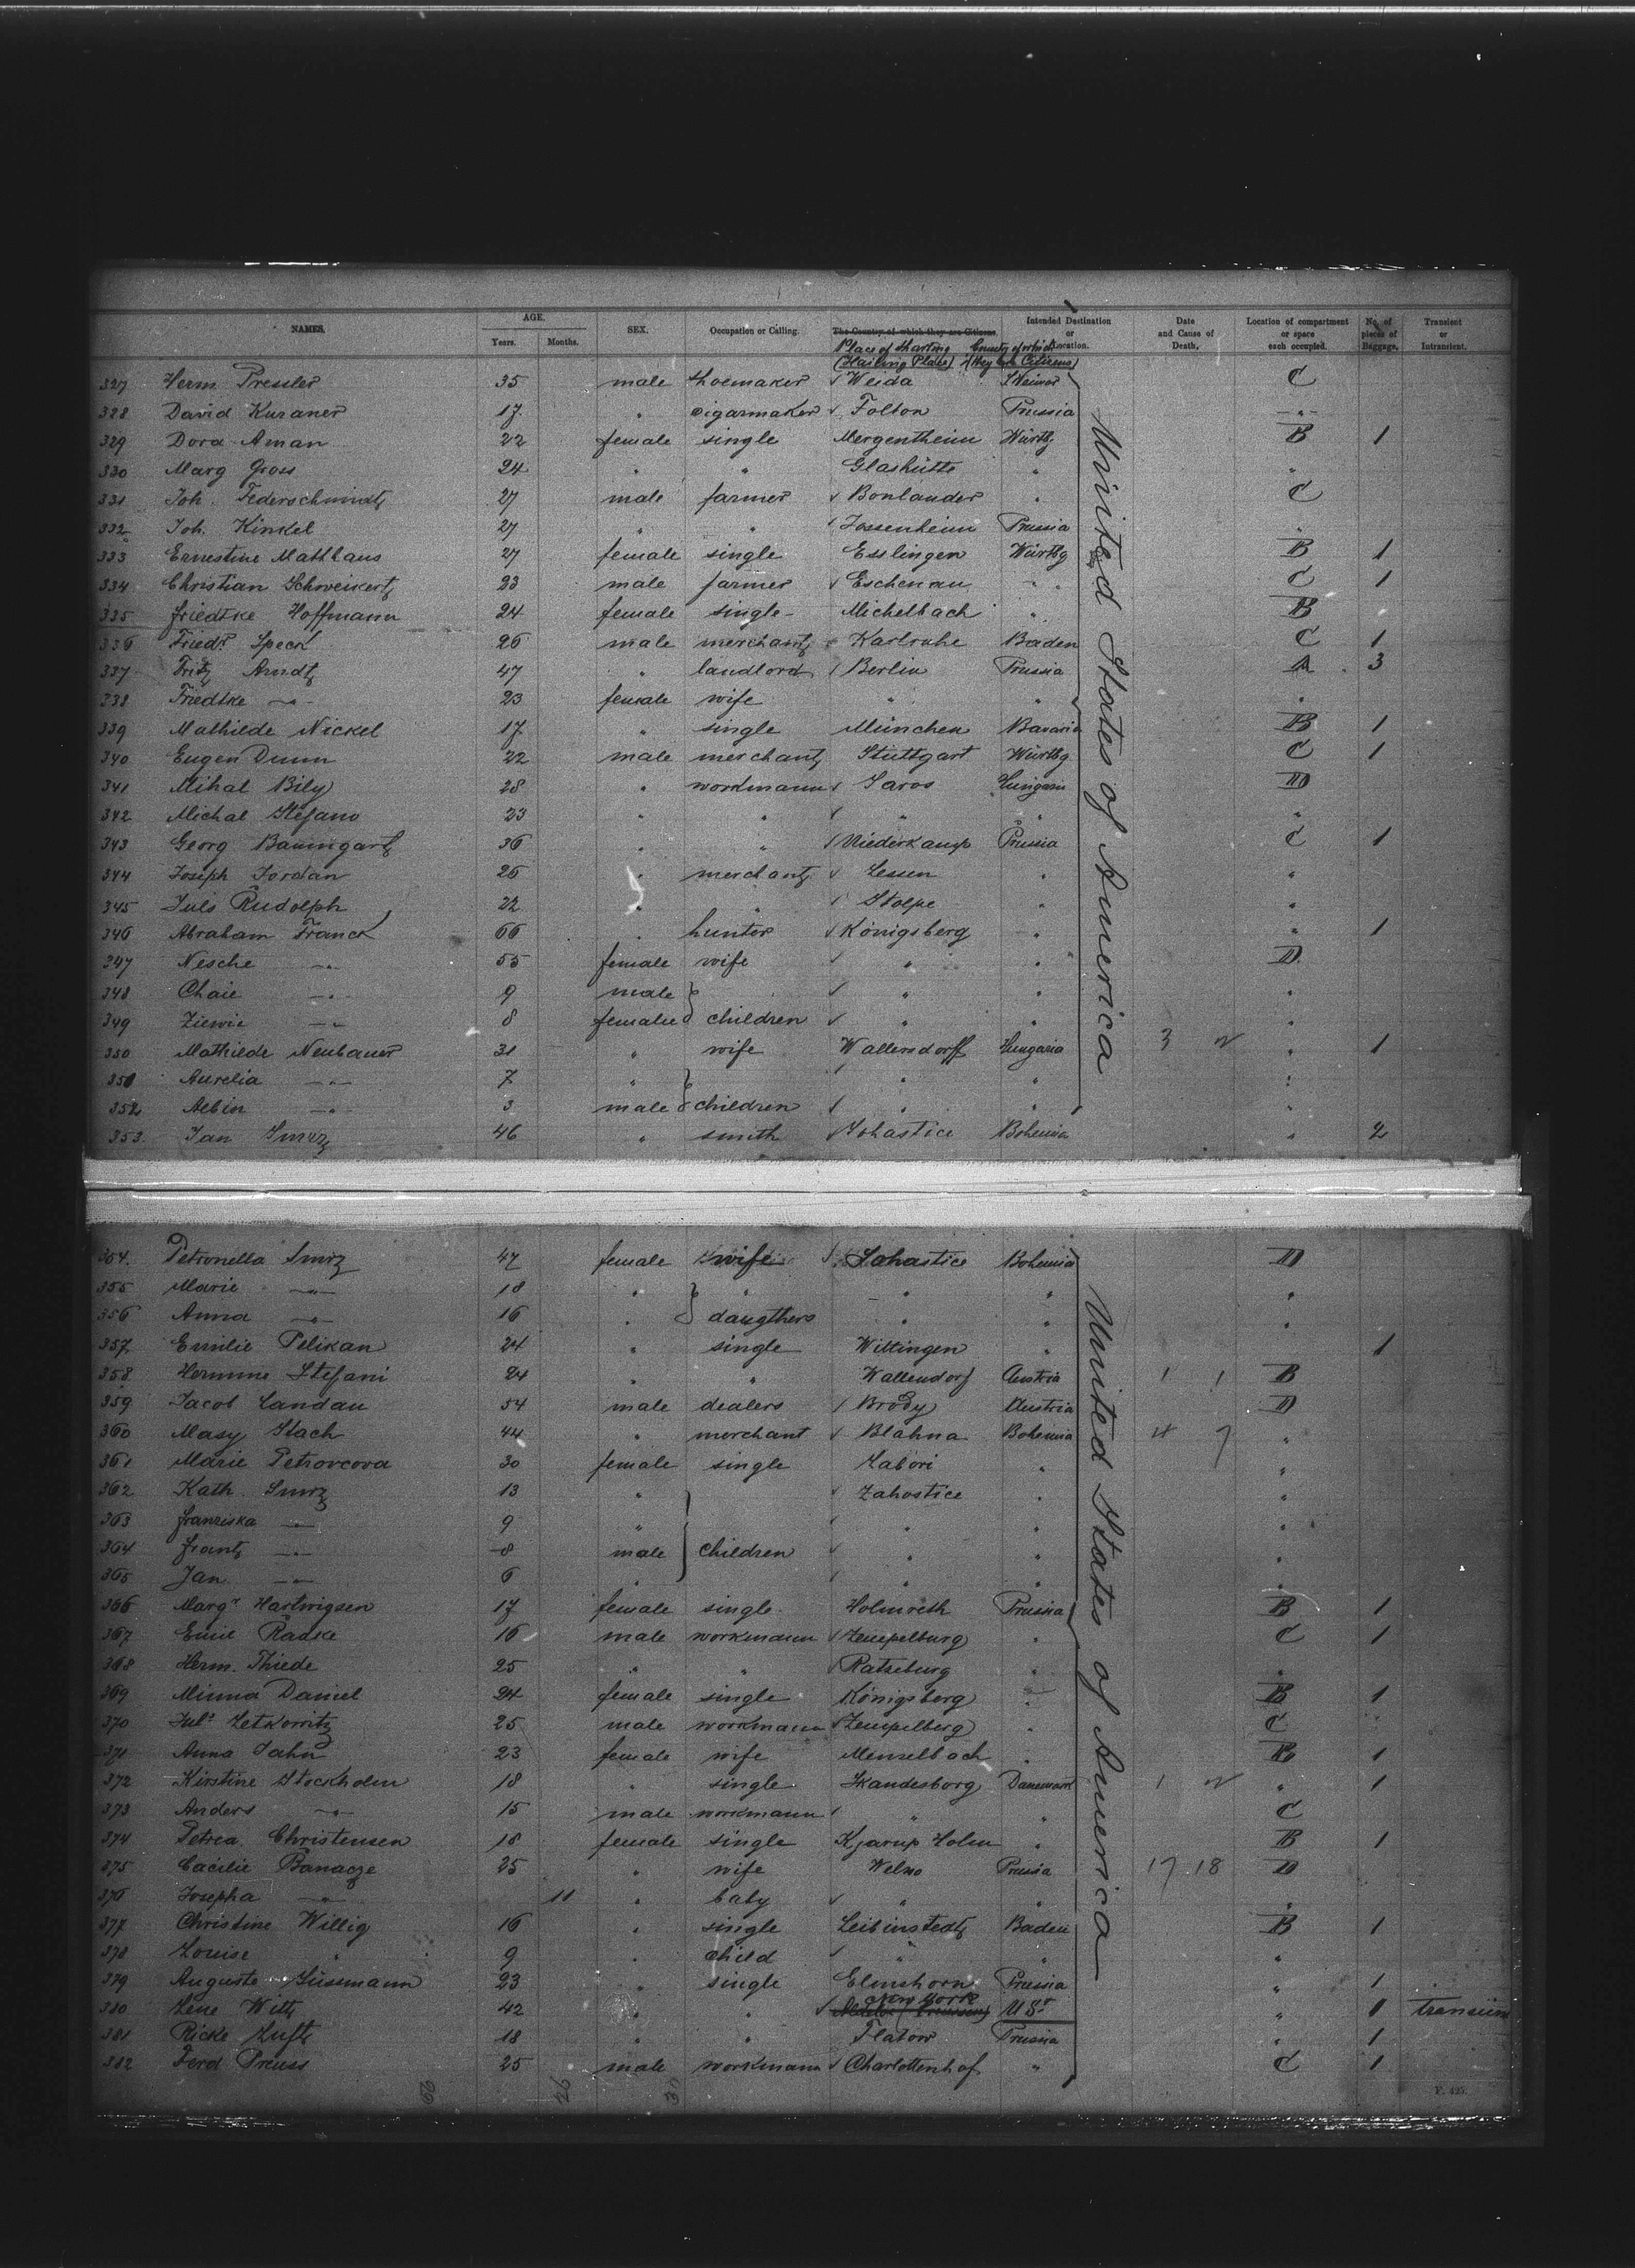 NAMES. AGE. Years. Months. SEX. Occupation or Calling. The Country of which they are Citizens. Intended Destination or Location. Date and Cause of Death. Location of compartment or space each occupied. No. of pieces of Baggage. Transient or Intransient.
Place of starting (Hailing Place)
327 Herm. Pressler 35 male shoemaker Weida S Weimar C
328 David Kuraner 17 " cigarmaker Folton Prussia "
329 Dora Aman 22 female single Mergentheim Württg B 1
330 Marg Gross 24 " " Glashütte " "
331 Joh. Federschmidt 27 male farmer Bonlander " C
332 Joh. Kinkel 27 " " Sossenheim Prussia "
333 Ernestine Matthaus 27 female single Esslingen Württbg B 1
334 Christian Schweikert 23 male farmer Eschenau " C 1
335 Friedrke Hoffmann 24 female single Michelbach " B
336 Friedr. Speck 26 male merchant Karlruhe Baden C 1
337 Fritz Arndt 47 " landlord Berlin Prussia 3
338 Friedrke " 23 female wife " " "
339 Mathilde Nickel 17 " single München Bavaria B 1
340 Eugen Dunn 22 male merchant Stuttgart Württbg C 1
341 Mihal Bily 28 " workmann Saros Hungaria D
342 Michal Stefano 23 " " " " "
343 Georg Baumgart 36 " " Niederkamp Prussia C 1
344 Joseph Jordan 26 " merchant Lessen " "
345 Juls Rudolph 22 " " Stolpe " "
346 Abraham Franck 66 " hunter Königsberg " " 1
347 Nesche " 55 female wife " " D
348 Chaie " 9 male " " "
349 Ziewie " 8 female children " " "
350 Mathilde Neubauer 31 " wife Wallensdorff Hungaria 3 " 1
351 Aurelia " 7 " " " "
352 Albin " 3 male children " " "
353 Jan Smrz 46 " smith Sohastice Bohemia " 2
United States of America
354. Petronella Smrz 47 female wife Sahastice Bohemia D
355 Marie " 18 " " " " "
356 Anna " 16 " daugthers " " "
357 Emilie Pelikan 24 " single Wittingen " 1
358 Hermine Stefani 24 " " Wallendorf Austria 1 1 B
359 Jacob Landau 54 male dealers Brody Austria D
360 Masy Stach 44 " merchant Blahna Bohemia 4 7 "
361 Marie Petrovcova 30 female single Zabori " "
362 Kath. Smrz 13 " Zahostice " "
363 Franziska " 9 " " " "
364 Frantz " 8 male children " " "
365 Jan " 6 " " " "
366 Margr Hartwigsen 17 female single Prussia B 1
367 Emil Radke 16 male workmann Zempelburg " C 1
368 Herm. Thiede 25 " " Ratzeburg " "
369 Minna Daniel 24 female single Königsberg " B 1
370 Juls Zetkowitz 25 male workmann Zempelberg " C
371 Anna Jahn 23 female wife Menselbach " B 1
372 Kirstine Stockholm 18 " single Skandesborg Danemark 1 " 1
373 Anders " 15 male workmann " " C
374 Petrea Christensen 18 female single Kjarup Holm " B 1
375 Cacilie Banacze 25 " wife Welno Prussia 17 18 D
376 Josepha " 11 " baby " " "
377 Christine Willig 16 " single Leibinstedt Baden B 1
378 Louise " 9 " child " " "
379 Auguste Süssmann 23 " single Elmshorn Prussia " 1
380 Lene Witt 42 " " New York U St " 1
381 Ricke Luft 18 " " Flatow Prussia " 1
382 Ferd Preuss 25 male workmann Charlottenhof " C 1
United States of America